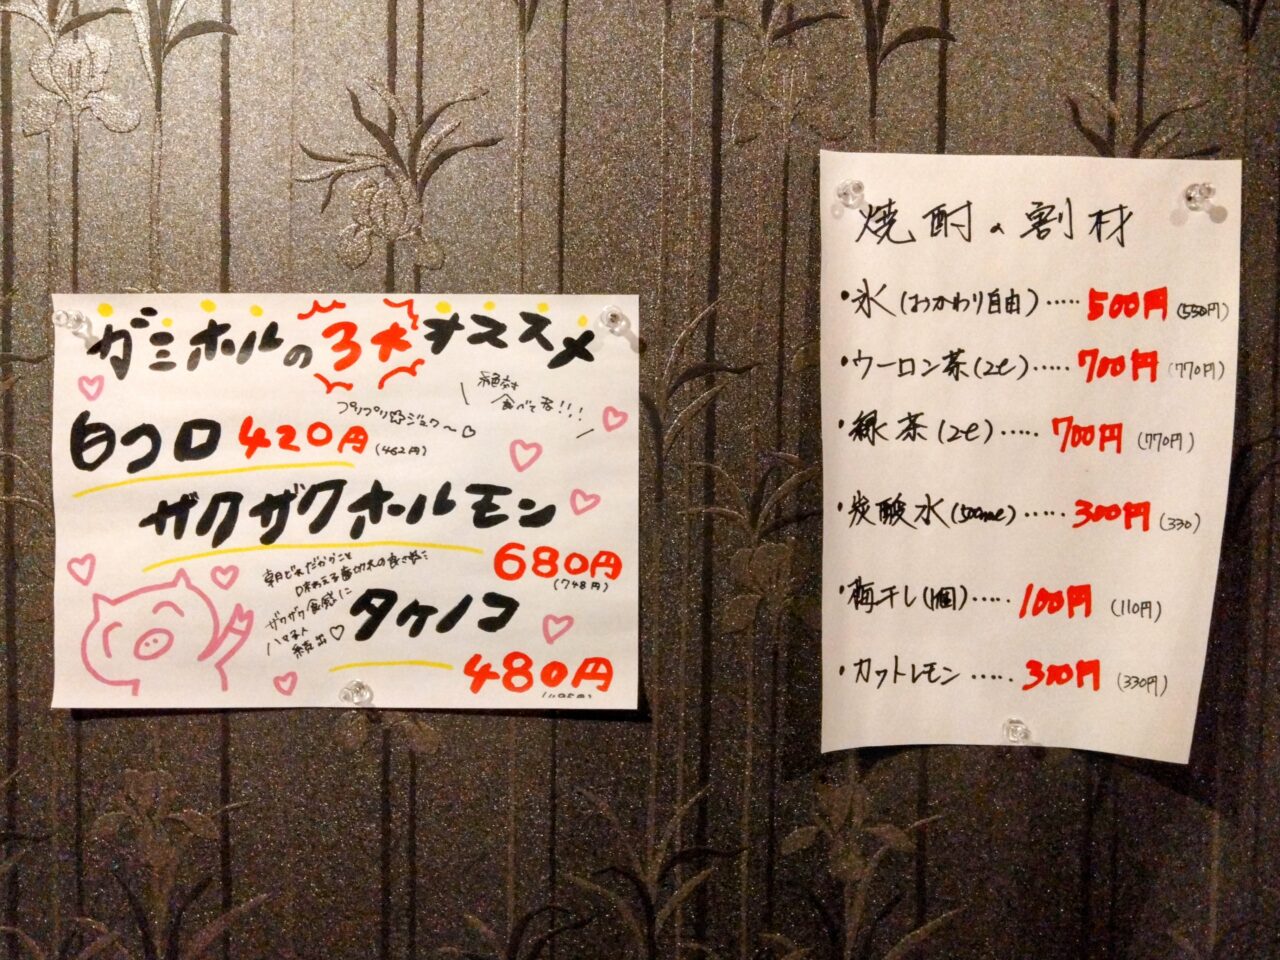 ガミホルの3大オススメ
絶対
食べて君!!!
プリプリ♡ジュワ〜♡
白コロ 420円 (462円)
ザクザクホルモン
680円
(748円)
朝びきだからこと
ザクザク食感に
ハマる人
続出♡
タケノコ
480円
焼酎の割材
・氷(おかわり自由)・・・・・500円(550円)
・ウーロン茶(2ℓ)・・・・・700円(770円)
・緑茶(2ℓ)・・・・・700円(770円)
・炭酸水(500mℓ)・・・・・300円(330)
・梅干し(1個)・・・・・100円(110円)
・カットレモン・・・・・300円(330円)